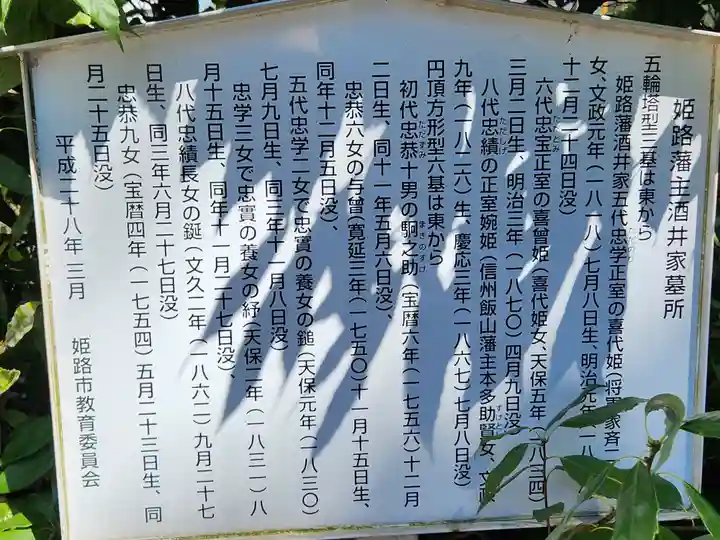 姫路藩主酒井家墓所
五輪塔型三基は東から
姫路藩酒井家五代忠学正室の喜代姫(将軍家斉
女、文政元年(一八一八)七月八日生、明治元年(一八
十二月二十四日没)
六代忠宝正室の喜曽姫(喜代姫女、天保五年(一八三四)
三月二日生、明治三年(一八七〇)四月九日没)
八代忠績の正室婉姫(信州飯山藩主本多助賢女、文政
九年(一八二六)生、慶応三年(一八六七)七月八日没)
円頂方形型六基は東から
初代忠恭十男の駒之助(宝暦六年(一七五六)十二月
二日生、同十一年五月六日没)、
忠恭六女の与曽(寛延三年(一七五〇)十一月十五日生、
同年十二月五日没)、
五代忠学二女で忠實の養女の鎚(天保元年(一八三〇)
七月九日生、同三年十一月八日没)
忠学三女で忠實の養女の紓(天保二年(一八三一)八
月十五日生、同年十一月二十七日没)、
八代忠績長女の鋋(文久二年(一八六二)九月二十七
日生、同三年六月二十七日没)
忠恭九女(宝暦四年(一七五四)五月二十三日生、同
月二十五日没)
平成二十八年三月
姫路市教育委員会